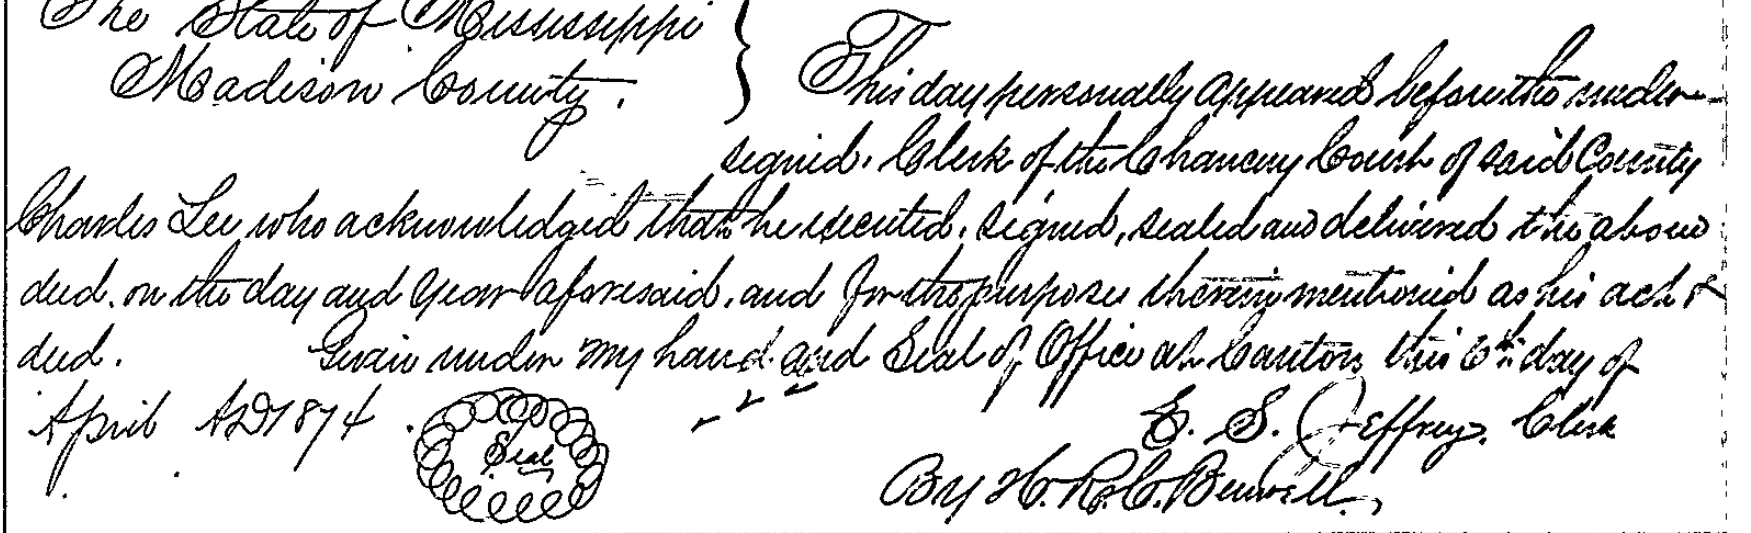 The State of Mississippi
Madison County.
This day personally appeared before the under-
signed. Clerk of the Chancery Court of said County
Charles Lee who acknowledged that he executed, signed, sealed and delivered the above
deed. on the day and year aforesaid. and for the purposes therein mentioned as his act &
deed. Given under my hand and Seal of Office at Canton this 6th day of
April AD 1874. Seal
E. S. Jeffrey. Clerk
By H. R. C.